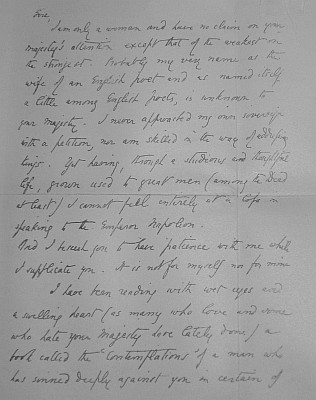 Sire,
I am only a woman and have no claim on your
majesty's attention except that of the weakest on
the strongest. Probably my very name as the
wife of an English poet and as named itself
a little among English poets, is unknown to
your majesty. I never approached my own sovereign
with a petition, nor am skilled in the way of addressing
kings. Yet having, through a studious and thoughtful
life, grown used to great men (among the Dead
at least) I cannot feel entirely at a loss in
speaking to the Emperor Napoleon.
And I beseech you to have patience with me while
I supplicate you. It is not for myself nor for mine
I have been reading with wet eyes and
a swelling heart (as many who love and some
who hate your Majesty have lately done) a
book called the "Contemplations" of a man who
has sinned deeply against you in certain of